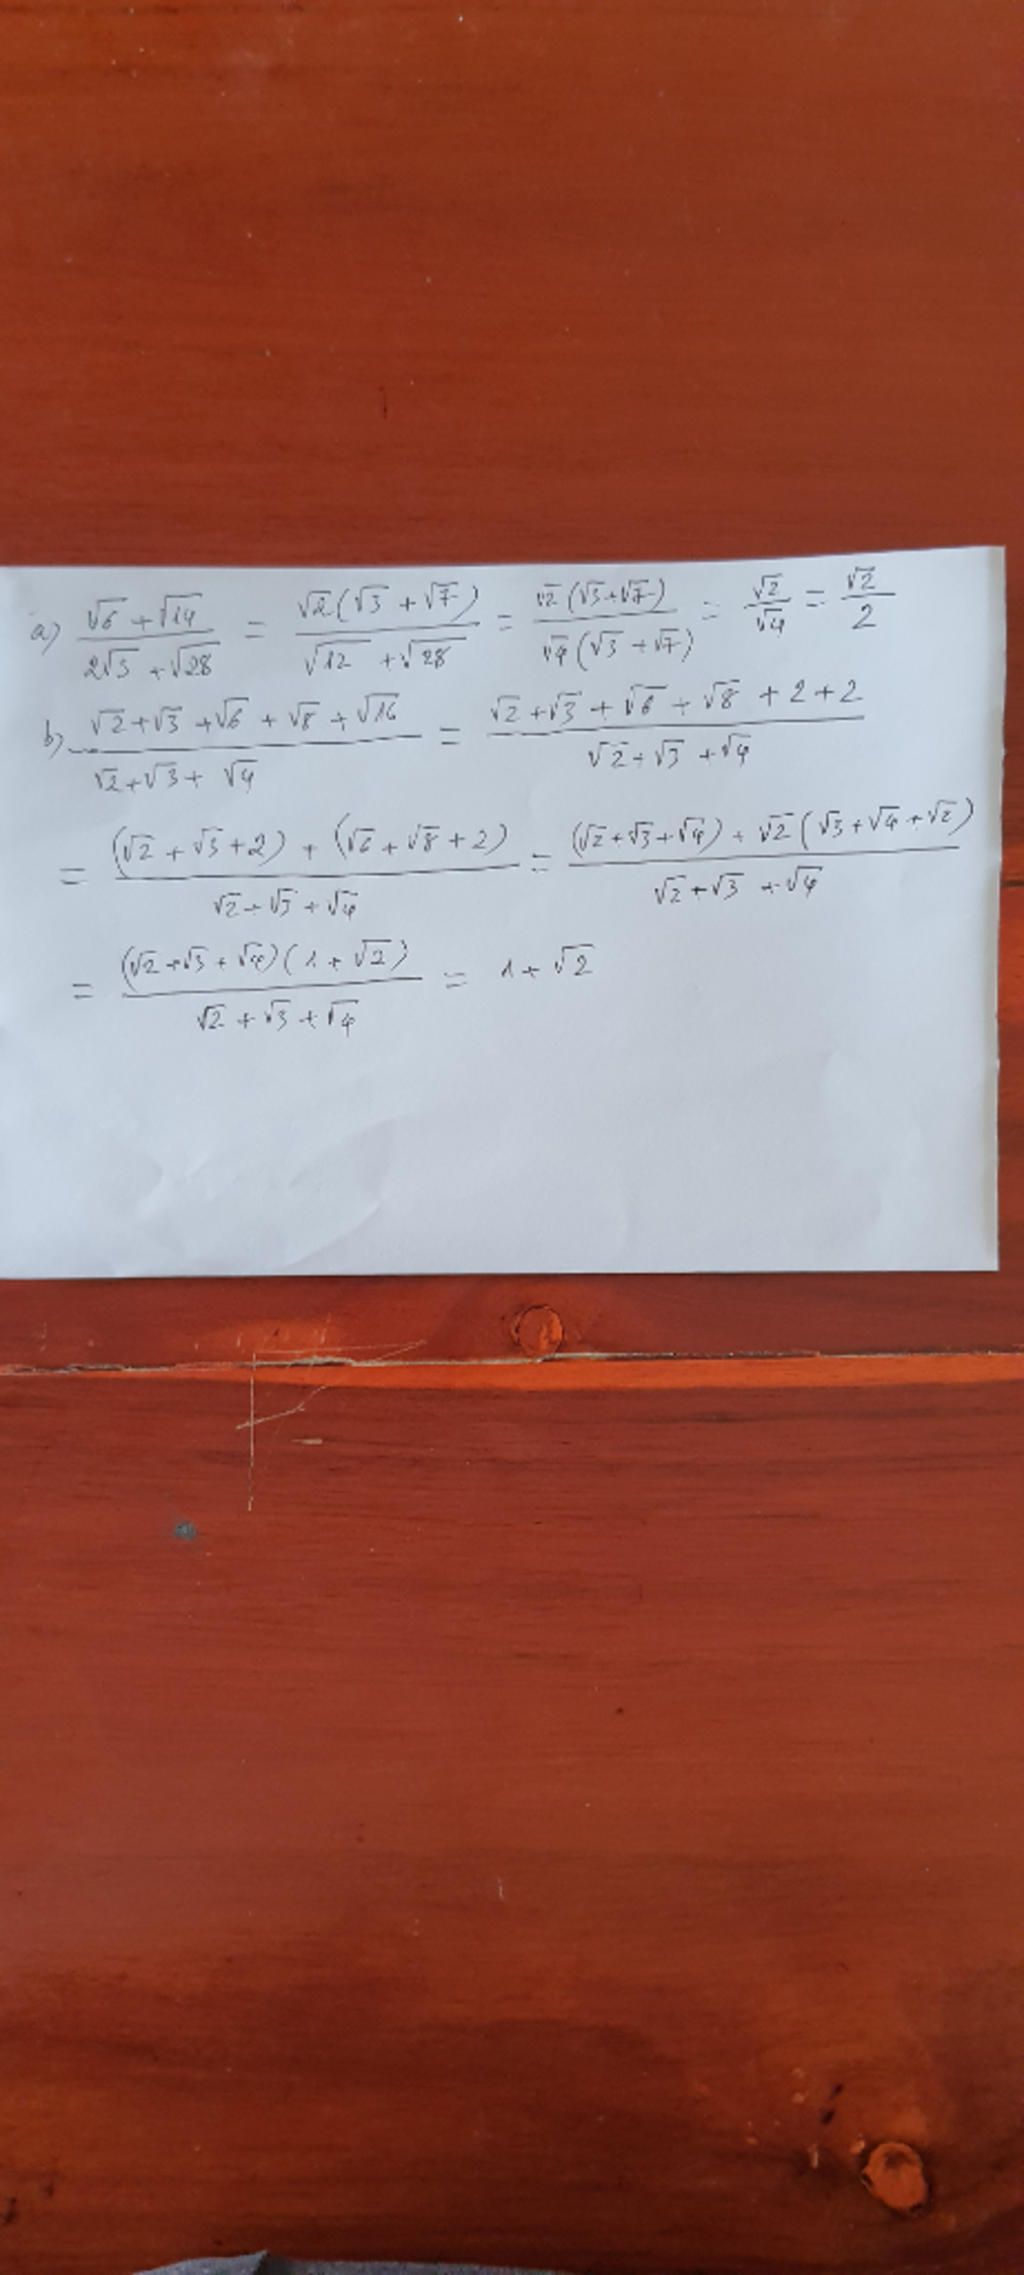 a) (√6 + √14)/(2√3 + √28) = (√2(√3 + √7))/(√12 + √28) = (√2(√3+√7))/(√4(√3+√7)) = √2/√4 = √2/2
b) (√2+√3+√6+√8+√16)/(√2+√3+√4) = (√2+√3+√6+√8+2+2)/(√2+√3+√4)
= ((√2+√3+2)+(√6+√8+2))/(√2+√3+√4) = ((√2+√3+√4)+√2(√3+√4+√2))/(√2+√3+√4)
= ((√2+√3+√4)(1+√2))/(√2+√3+√4) = 1+√2